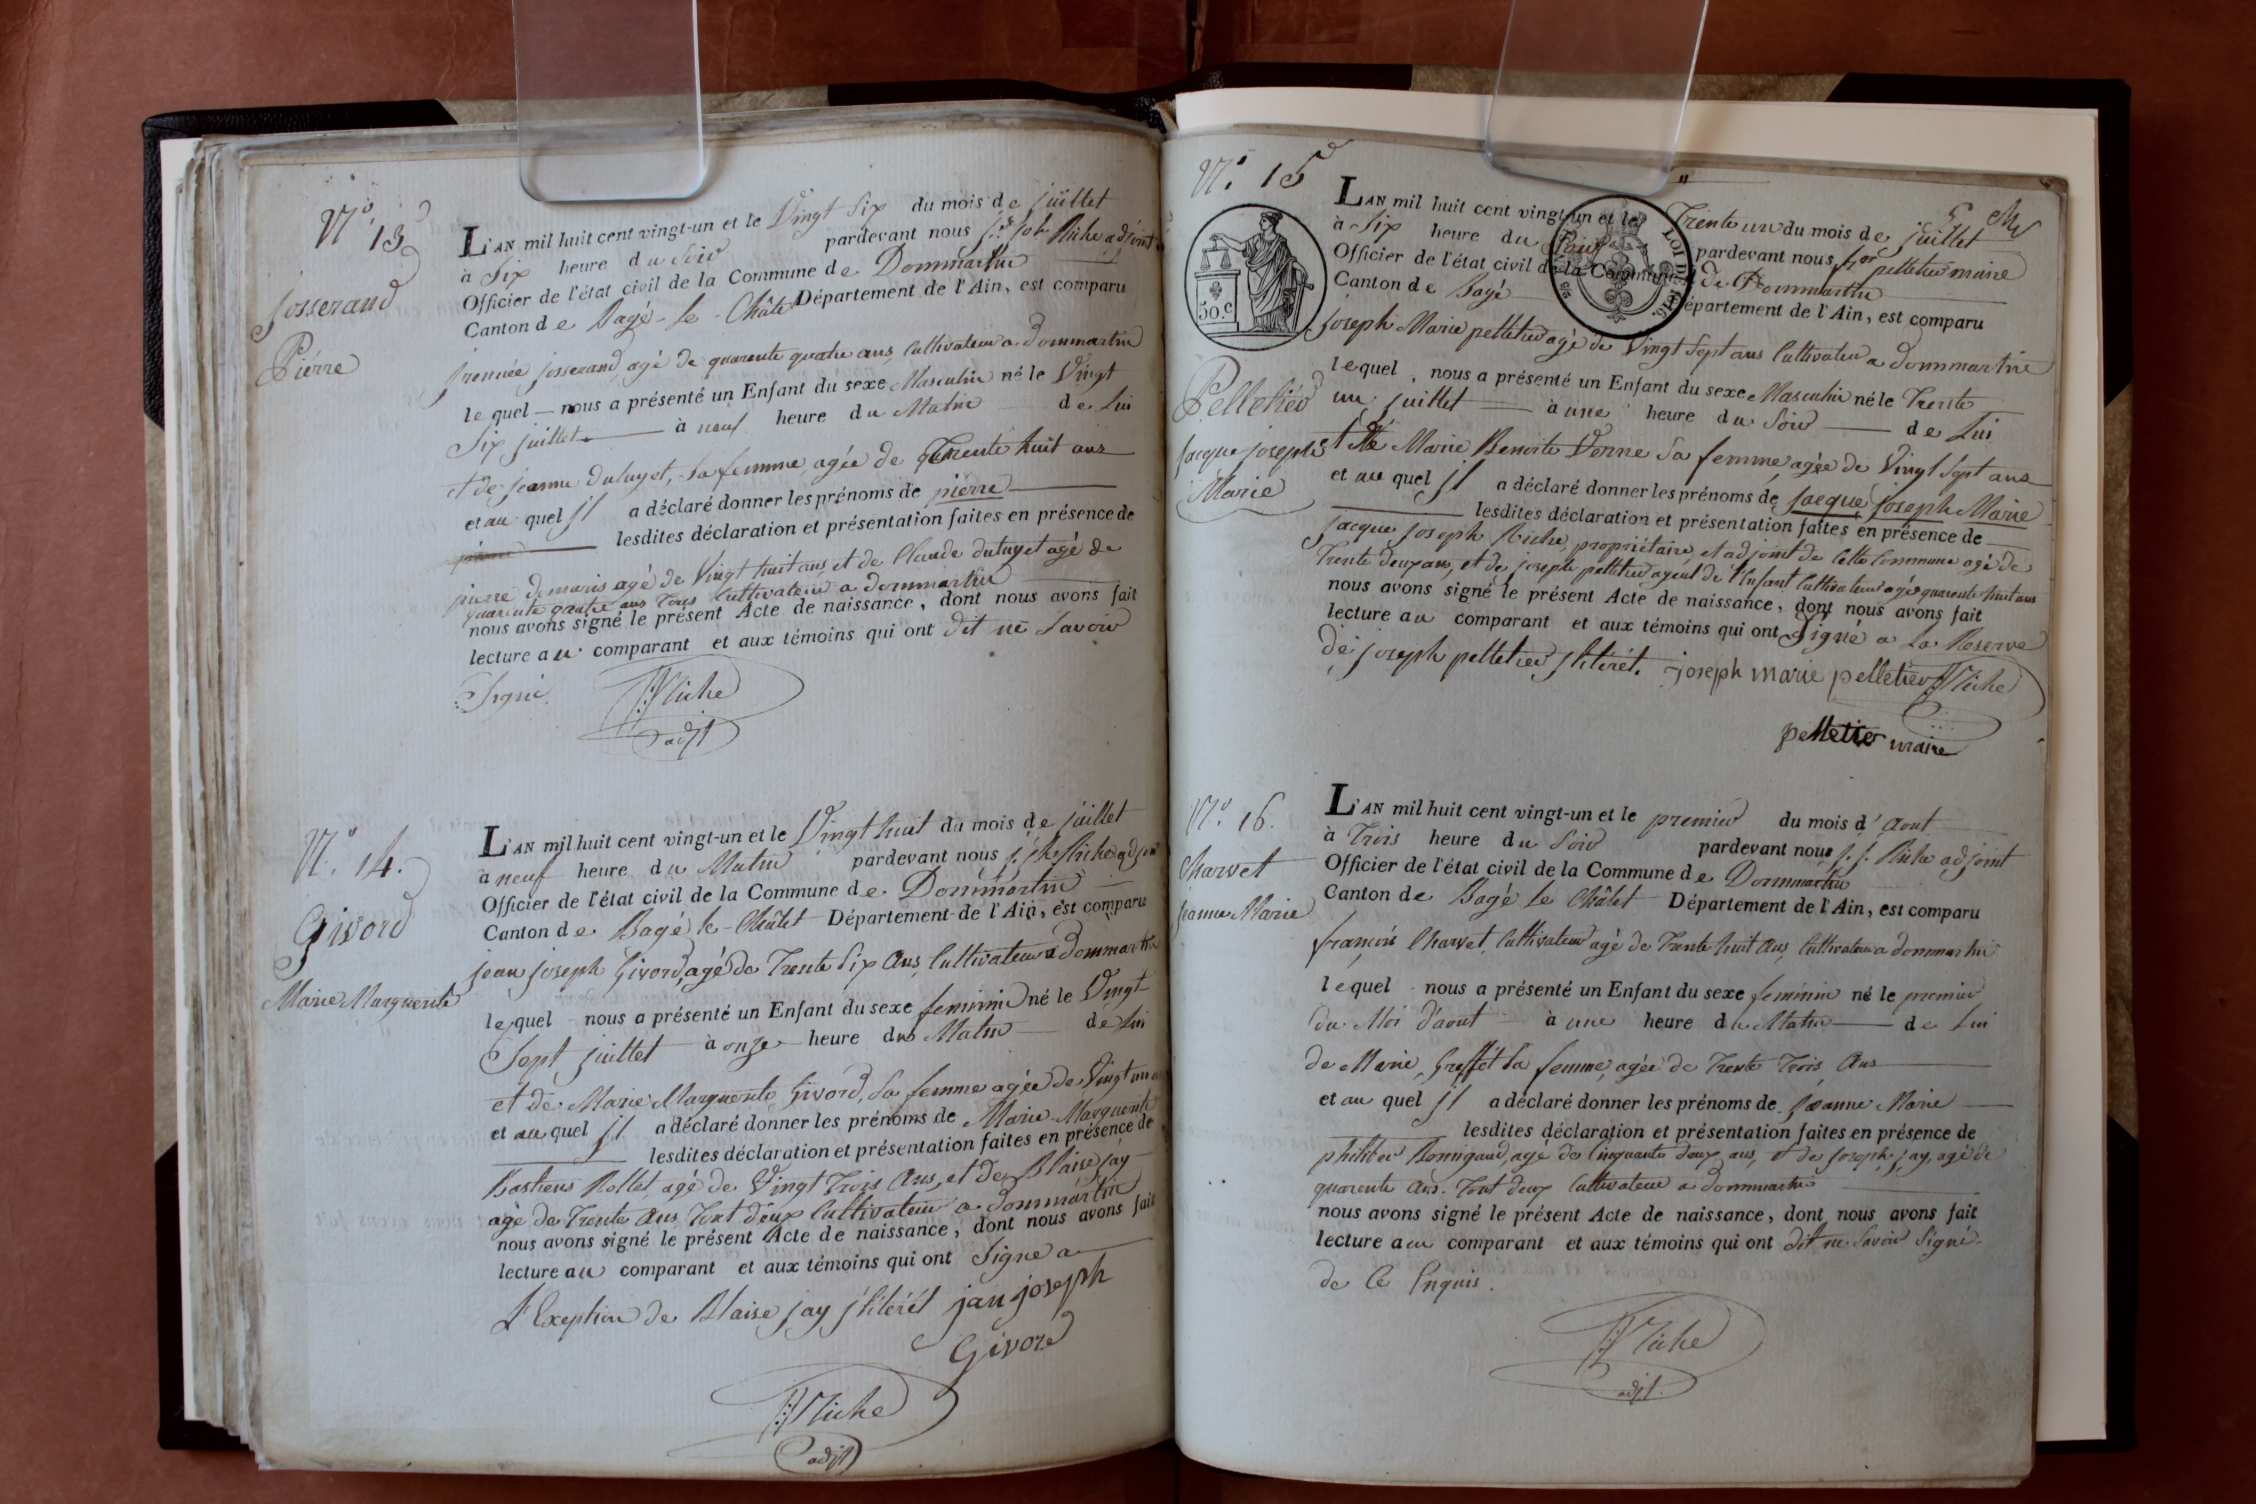 N.º 13
Josserand
Pierre
L'AN mil huit cent vingt-un et le Vingt Six du mois de juillet
à Six heure du Soir pardevant nous Jh Riche adjoint
Officier de l'état civil de la Commune de Dommartin
Canton de Bagé-le-Châtel Département de l'Ain, est comparu
josserand, agé de quarente quatre ans, Cultivateur a dommartin
lequel nous a présenté un Enfant du sexe Masculin né le Vingt
Six juillet à neuf heure du Matin de Lui
et de jeanne dutuyet, Sa femme, agée de Trente huit ans
et au quel jl a déclaré donner les prénoms de pierre
lesdites déclaration et présentation faites en présence de
pierre demaris agé de Vingt huit ans et de Claude dutuyet agé de
quarente quatre ans Tous Cultivateur a dommartin
nous avons signé le présent Acte de naissance, dont nous avons fait
lecture au comparant et aux témoins qui ont dit ne Savoir
Signé. Riche
adjt
N.º 14.
Givord
Marie Marguerite
L'AN mil huit cent vingt-un et le Vingt huit du mois de juillet
à neuf heure du Matin pardevant nous j. jh Riche adjoint
Officier de l'état civil de la Commune de Dommartin
Canton de Bagé le-Châtel Département de l'Ain, est comparu
jean joseph Givord, agé de Trente Six Ans, Cultivateur a Dommartin
lequel nous a présenté un Enfant du sexe feminin né le Vingt
Sept juillet à onze heure du Matin de Lui
et de Marie Marguerite Givord, Sa femme agée de Vingt un
et au quel jl a déclaré donner les prénoms de Marie Marguerite
lesdites déclaration et présentation faites en présence de
Bastiens Rollet, agé de Vingt Trois Ans, et de Blaise jay
agé de Trente Ans, Tout deux Cultivateur a dommartin
nous avons signé le présent Acte de naissance, dont nous avons fait
lecture au comparant et aux témoins qui ont Signe a
L'Exeption de Blaise jay jlitérét jan joseph
Givord
Riche
adjt
N.º 15
50.c
LOI DE 1816
Pelletier
jacque joseph
Marie
L'AN mil huit cent vingt-un et le Trente un du mois de juillet
à Six heure du Soir pardevant nous pelletier maire
Officier de l'état civil de la Commune de Dommartin
Canton de Bagé Département de l'Ain, est comparu
joseph Marie pelletier agé de Vingt Sept ans Cultivateur a dommartin
lequel nous a présenté un Enfant du sexe Masculin né le Trente
un juillet à une heure du Soir de Lui
Marie Benoite Donne Sa femme, agée de Vingt Sept ans
et au quel jl a déclaré donner les prénoms de jacque joseph Marie
lesdites déclaration et présentation faites en présence de
jacque joseph Riche, propriétaire, et adjoint de Cette Commune agé de
Trente deux ans, et de joseph pelletier ayeul de l'Enfant Cultivateur agé quarente huit ans
nous avons signé le présent Acte de naissance, dont nous avons fait
lecture au comparant et aux témoins qui ont Signé a La Reserve
de joseph pelletier jlitérét. joseph marie pelletier Riche
pelletier maire
N.º 16.
Charvet
jeanne Marie
L'AN mil huit cent vingt-un et le premier du mois d'Aout
à Trois heure du Soir pardevant nous j. j. Riche adjoint
Officier de l'état civil de la Commune de Dommartin
Canton de Bagé le Châtel Département de l'Ain, est comparu
françois Charvet, Cultivateur agé de Trente huit Ans, Cultivateur a dommartin
lequel nous a présenté un Enfant du sexe feminin né le premier
du Moi d'aout à une heure du Matin de Lui
de Marie, Greffet Sa femme, agée de Trente Trois Ans
et au quel jl a déclaré donner les prénoms de jeanne Marie
lesdites déclaration et présentation faites en présence de
philiber Bonnigaud, agé de Cinquante deux ans, et de joseph jay, agé de
quarente Ans. Tout deux Cultivateur a dommartin
nous avons signé le présent Acte de naissance, dont nous avons fait
lecture au comparant et aux témoins qui ont dit ne Savoir Signé.
de Ce Enquis.
Riche
adjt.